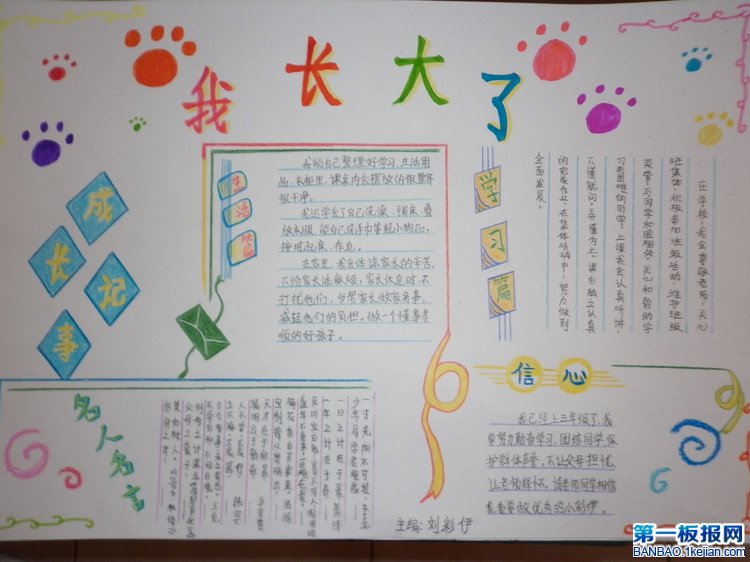 我长大了
成长记事
生活篇
我能自己整理好学习、生活用
品,衣柜里、课桌内会摆放的很整齐
很干净。
我还学会了自己洗澡、铺床、叠
放衣服,能自己洗手巾等轻小物品,
按时起床、作息。
在家里,我会体谅家长的辛苦,
不给家长添麻烦,家长休息时,不
打扰他们,多帮家长做家务事,
减轻他们的负担。做一个懂事孝
顺的好孩子。
学习篇
在学校,我会尊敬老师,关心
班集体,积极参加班级活动,维护班级
荣誉,与同学和睦相处,关心和帮助学
习有困难的同学,上课我会认真听讲,
不懂就问,并做为课后独立认真
的完成作业,在集体活动中,努力做到
全面发展。
信心
我已经上三年级了,我
要努力勤奋学习,团结同学,保
护群体声誉,不让父母担忧,
让老师称怀,请老师同学相信
我,我要做优秀的小彩伊。
名人名言
一寸光阴不可轻。
少年易学老难成
一年之计在于春,
一日之计在于晨。
及时当勉励,岁月不待人 陶渊明
盛年不重来,一日难再晨。
梅花香自苦寒来。
宝剑锋从磨砺出,
主编:刘彩伊
第一板报网
BANBAO.1kejian.com